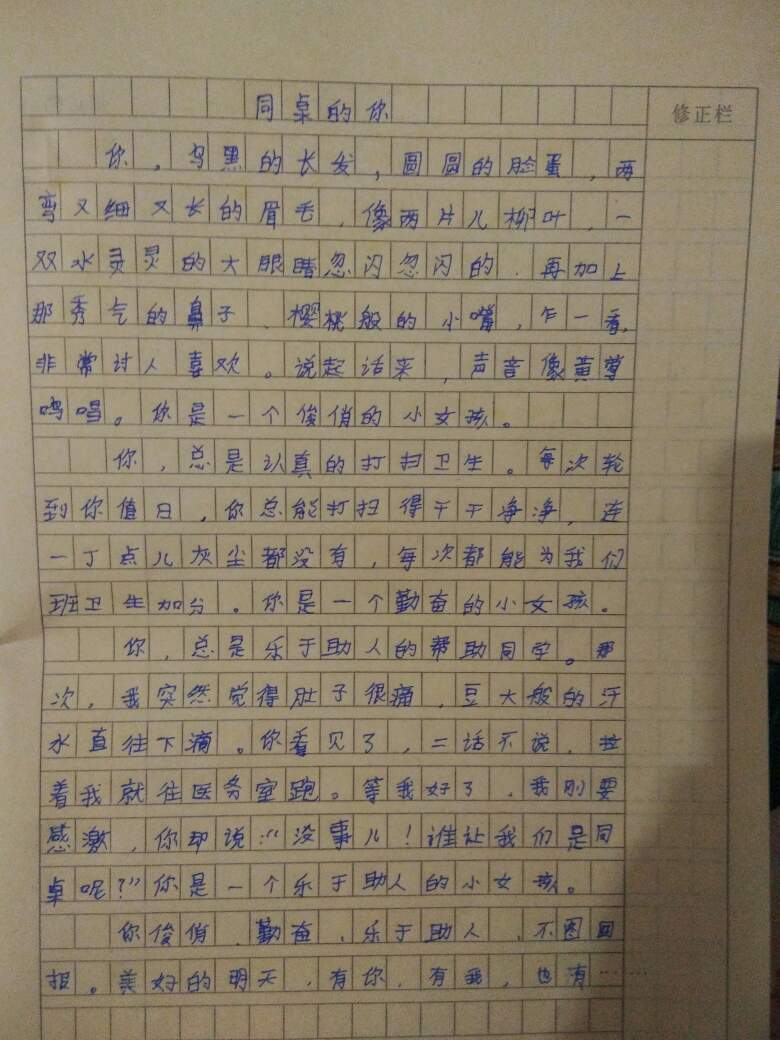 同桌的你
修正栏
你，乌黑的长发，圆圆的脸蛋，两
弯又细又长的眉毛，像两片儿柳叶，一
双水灵灵的大眼睛忽闪忽闪的，再加上
那秀气的鼻子、樱桃般的小嘴，乍一看，
非常讨人喜欢。说起话来，声音像黄莺
鸣唱。你是一个俊俏的小女孩。
你，总是认真的打扫卫生。每次轮
到你值日，你总能打扫得干干净净，连
一丁点儿灰尘都没有，每次都能为我们
班卫生加分。你是一个勤奋的小女孩。
你，总是乐于助人的帮助同学。那
次，我突然觉得肚子很痛，豆大般的汗
水直往下滴。你看见了，二话不说，拉
着我就往医务室跑。等我好了，我刚要
感激，你却说：“没事儿！谁让我们是同
桌呢？”你是一个乐于助人的小女孩。
你俊俏、勤奋、乐于助人、不图回
报。美好的明天，有你，有我，也有……